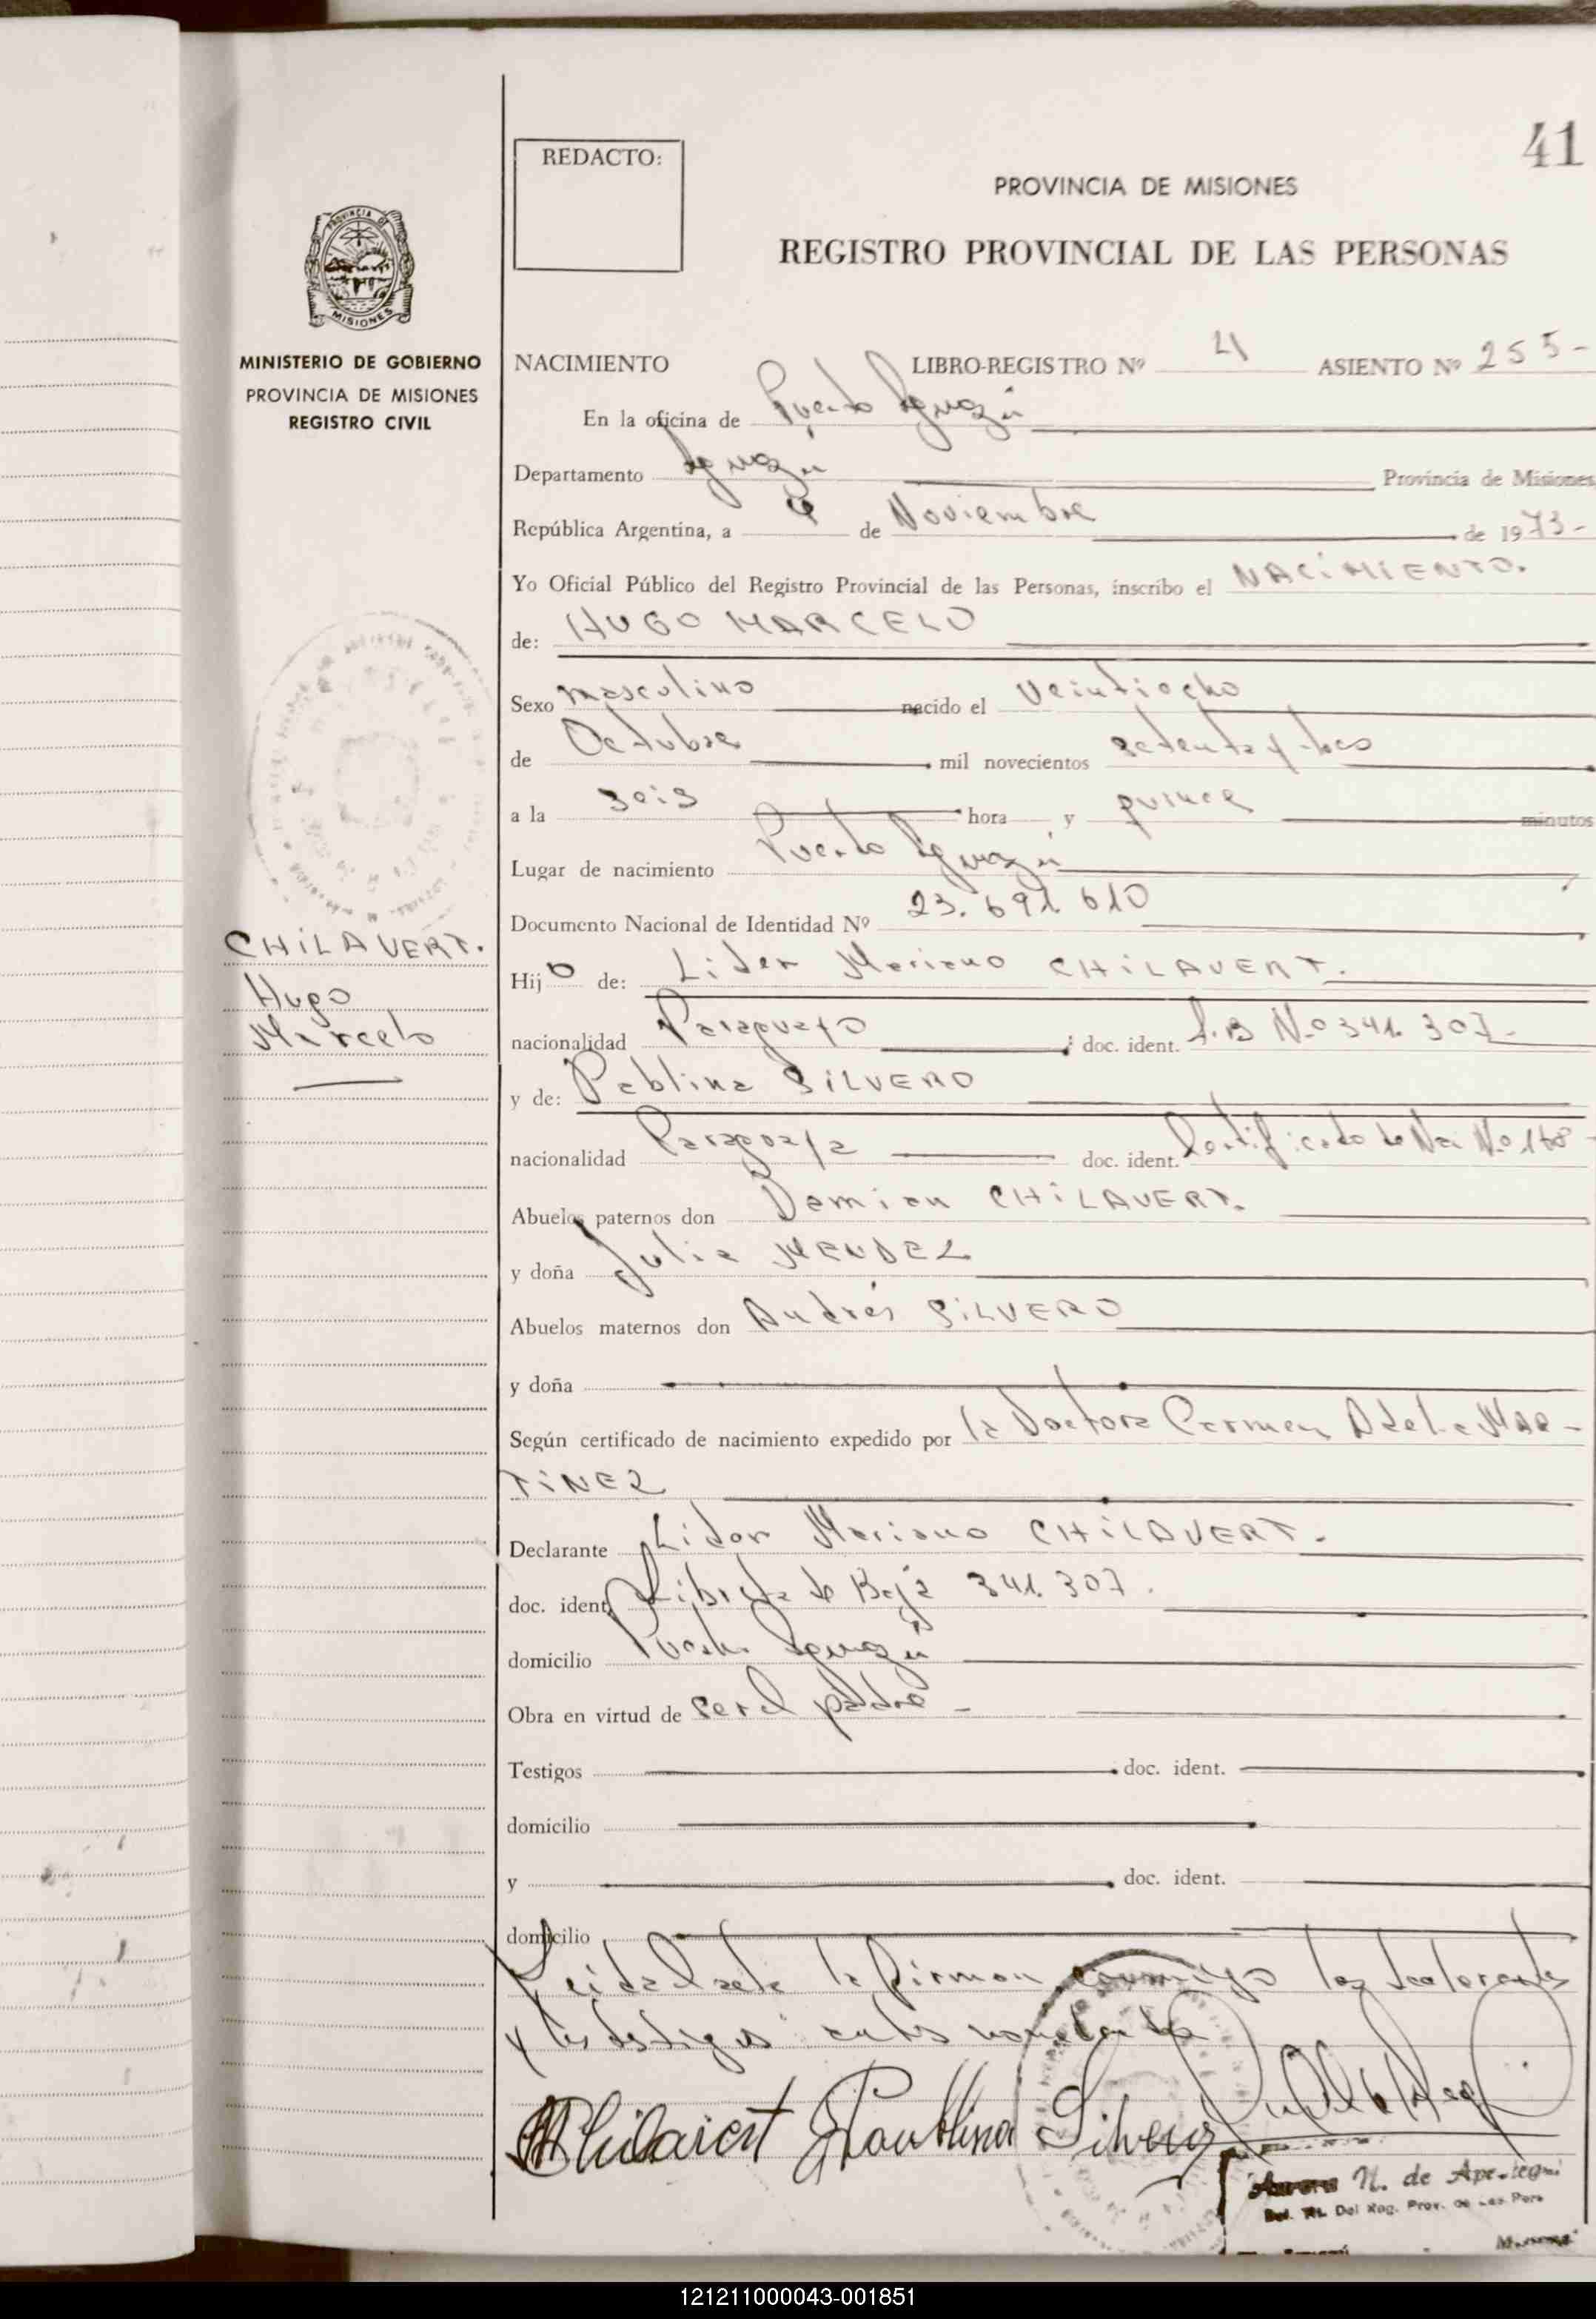 41
REDACTO:
PROVINCIA DE MISIONES
REGISTRO PROVINCIAL DE LAS PERSONAS
PROVINCIA DE
MISIONES
MINISTERIO DE GOBIERNO
PROVINCIA DE MISIONES
REGISTRO CIVIL
NACIMIENTO LIBRO-REGISTRO Nº 4 ASIENTO Nº 255-
En la oficina de Puerto Iguazú
Departamento Iguazú Provincia de Misiones
República Argentina, a de Noviembre de 1973-
Yo Oficial Público del Registro Provincial de las Personas, inscribo el NACIMIENTO.
de: HUGO MARCELO
Sexo masculino nacido el veintiocho
de Octubre mil novecientos setenta y tres
a la seis hora y quince minutos
Lugar de nacimiento Puerto Iguazú
Documento Nacional de Identidad Nº 23.691.610
CHILAVERT.
Hugo
Marcelo
Hijo de: Lider Mariano CHILAVERT.
nacionalidad Paraguayo doc. ident. L.B Nº 341.307-
y de: Pablina SILVERO
nacionalidad Paraguaya doc. ident. Certificado de Nac Nº 168
Abuelos paternos don Damian CHILAVERT.
y doña Julia MENDEZ
Abuelos maternos don Andrés SILVERO
y doña
Según certificado de nacimiento expedido por la Doctora Carmen Adela MAR-
TINEZ
Declarante Lider Mariano CHILAVERT.
doc. ident. Libreta de Baja 341.307.
domicilio Puerto Iguazú
Obra en virtud de ser el padre -
Testigos doc. ident.
domicilio
y doc. ident.
domicilio
Leida el acta la firman conmigo los declarantes
y los testigos antes nombrados
Chilavert Paublina Silvero
N. de
Del Reg. Prov. de Las Pers
121211000043-001851